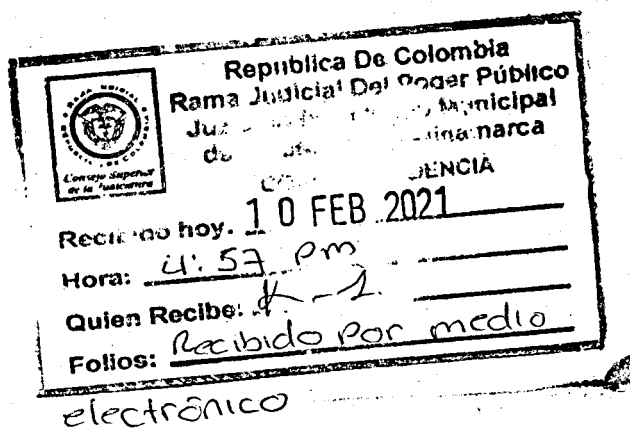 Republica De Colombia
Rama Judicial Del Poder Público
Municipal
Consejo Superior
de la Judicatura
Recibido hoy. 10 FEB 2021
Hora: 4:57 pm
Quien Recibe: K-1.
Folios: Recibido por medio
electrónico